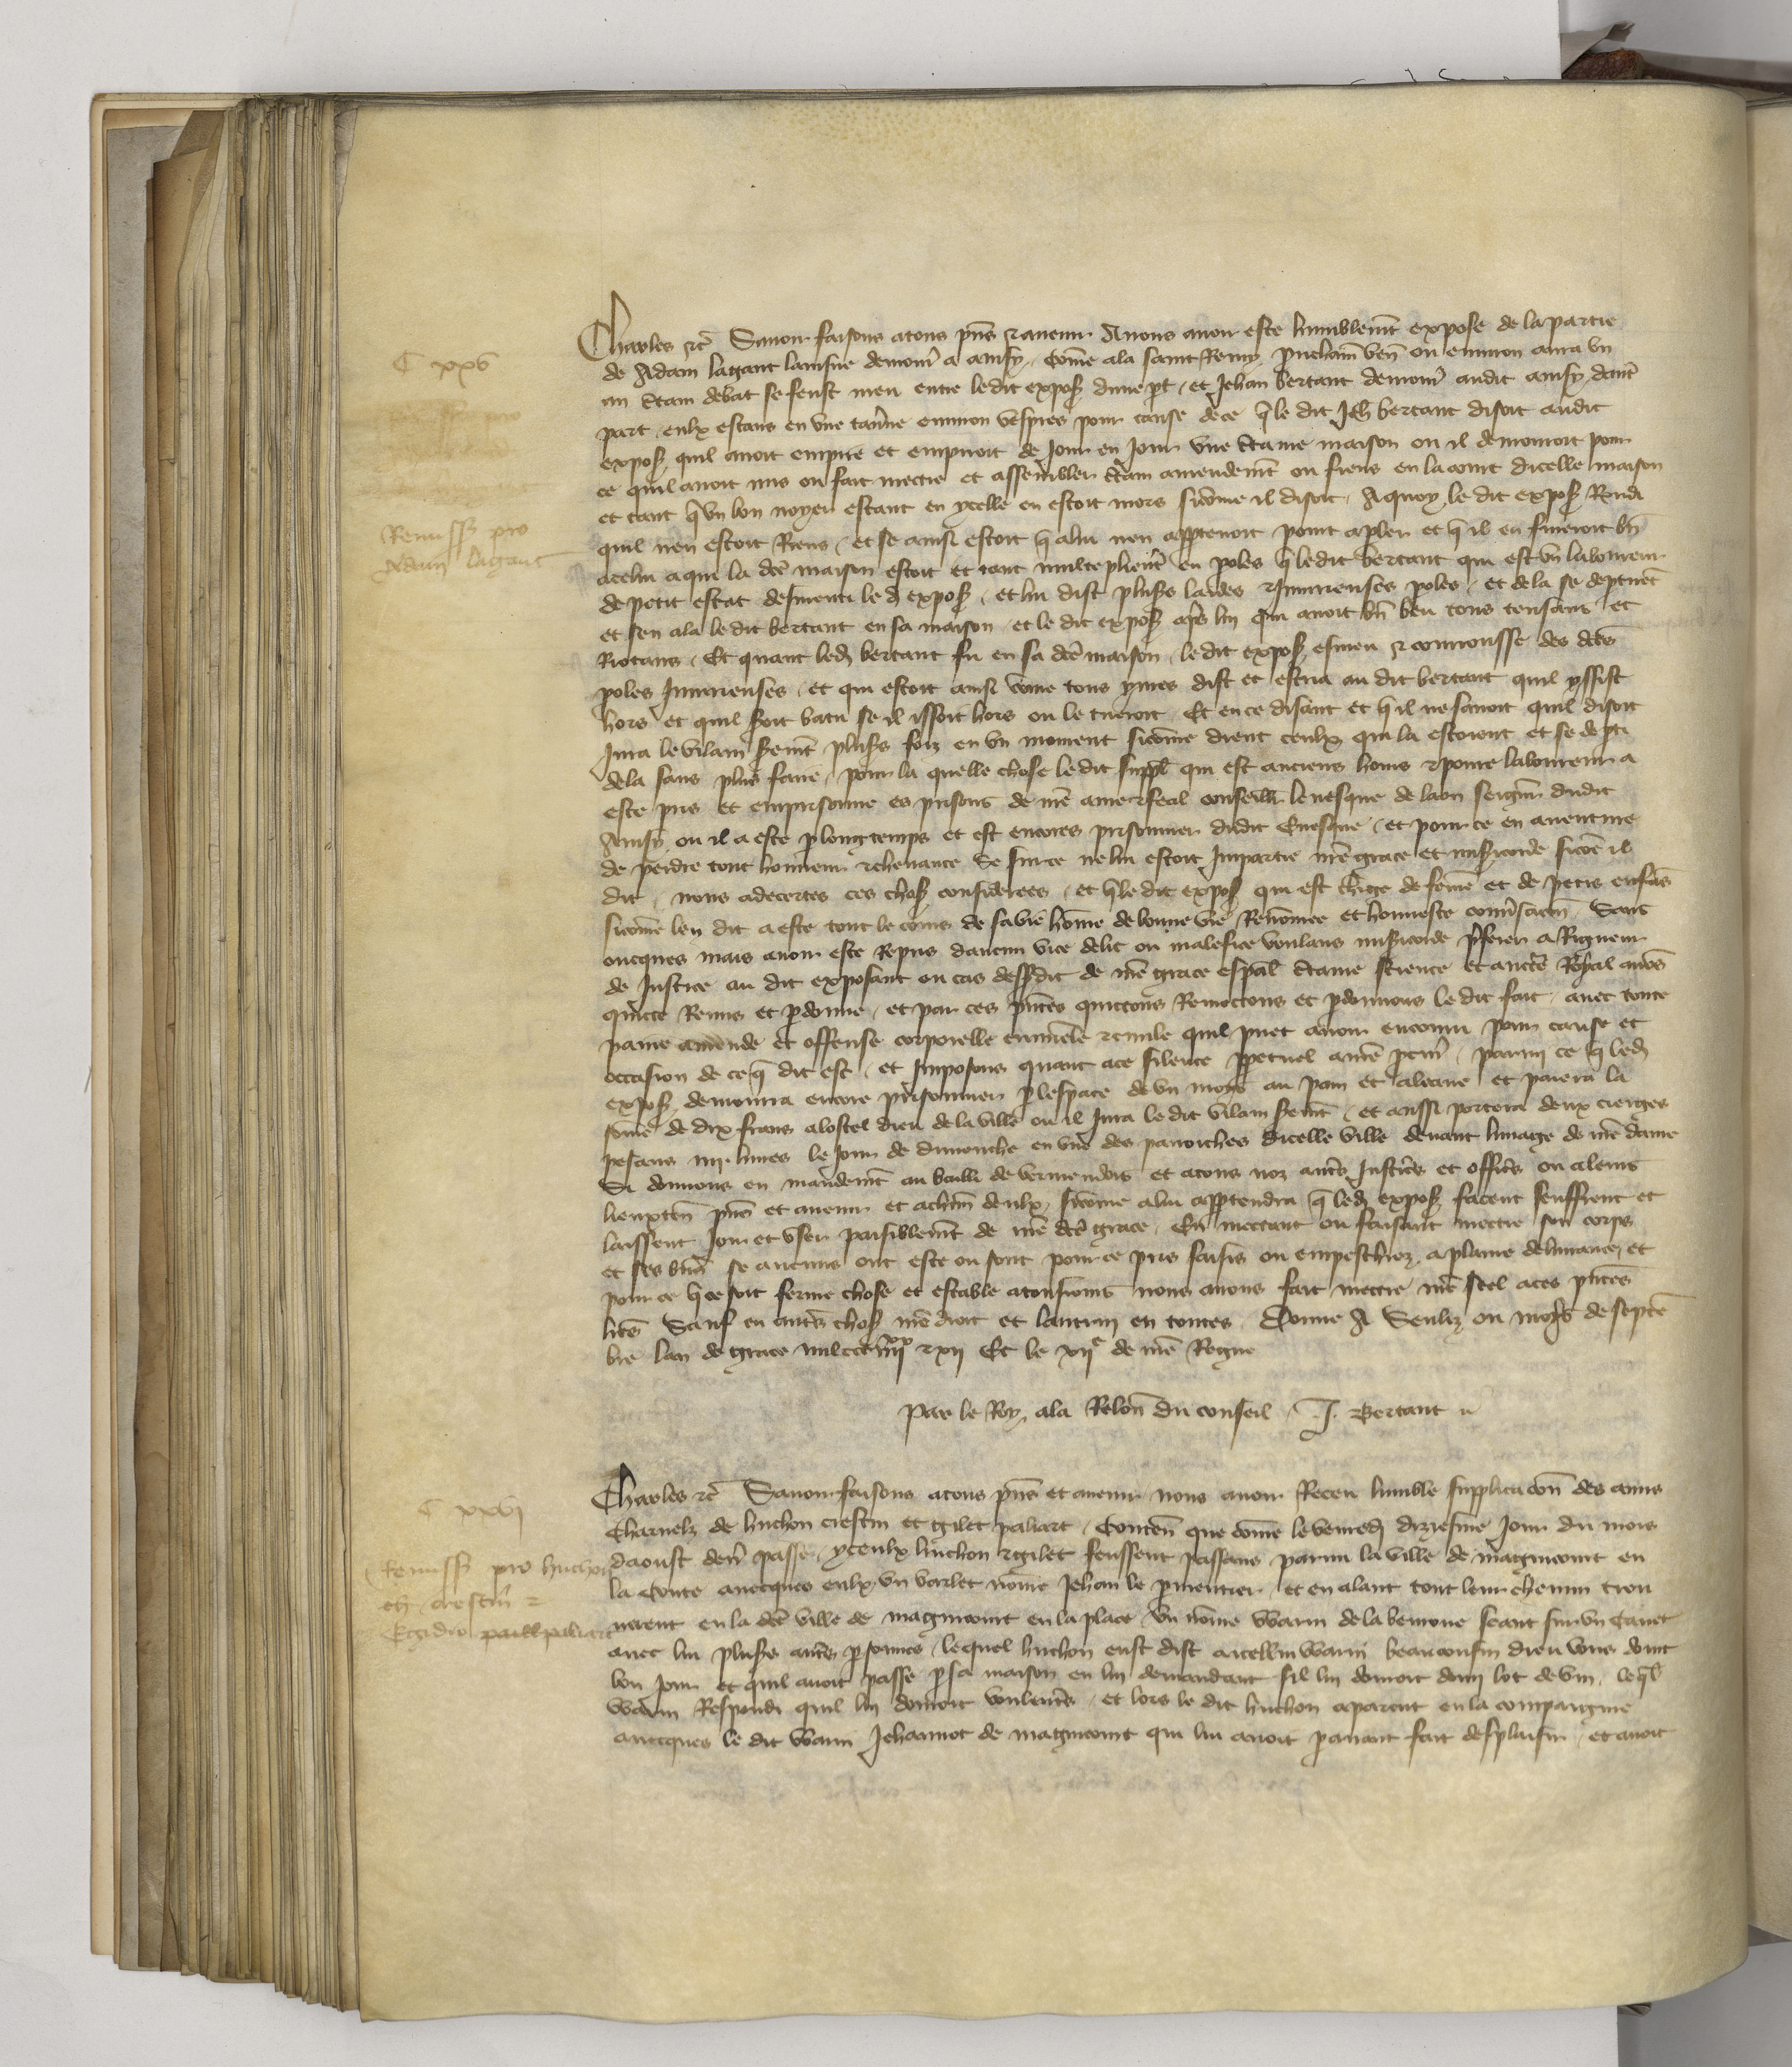 C xxv
Remiss pro
Adam lagant
Charles etc Savoir faisons a tous pñs et avenir A nous avoir este humblemt expose de la partie
de Adam lagant lainsne demourã a anisy, Cõme a la saint Remy prochaiñ veñ ou environ aura un
an c̃tain debat se feust meu entre le dit expos dune p̃t, et Jehan bertaut demourã audit anisy dauťe
part, eulx estans en une taṽne environ vespres pour cause de ce q̃ le dit Jeh bertaut disoit audit
expos, quil avoit empire et empiroit de jour en jour une c̃taine maison ou il demouroit pour
ce quil avoit mis ou fait mectre et assembler c̃tain amendemt ou fiens en la court dicelle maison
et tant q̃ un bon noyer estant en ycelle en estoit mors sicõme il disoit, A quoy le dit expos Rondi
quil nen estoit Riens, et se ainsi estoit q̃ a lui nen apptenoit point a p̃ler et q̃ il en fineroit bñ
a celui a qui la dc̃e maison estoit et tant multepliẽrt en p̃oles q̃ le dit bertaut qui est un laboureur
de petit estat desmenti le d̃ expos, et lui dist plus̃s laides et Iniurieuses p̃oles, et de la se dep̃tirẽt
et sen ala le dit bertaut en sa maison, et le dit expos ap̃s lui qui avoit bñ beu tous tensans et
Riotans, Et quant led̃ bertaut fu en sa dc̃e maison, le dit expos, esmeu et couroussie des dc̃es
p̃oles Iniurieuses, et qui estoit ainsi cõme tous yvres dist et escria au dit bertaut quil yssist
hors et quil seroit batu se il issoit hors ou le tueroit, Et en ce disant et q̃ il ne savoit quil disoit
Jura le vilain sermt plus̃s foiz en un moment sicõme dient ceulx qui la estoient et se dep̃ti
de la sans plus faire, pour la quelle chose le dit suppl̃ qui est anciens homs et povre laboureur a
este pris et emprisonne es prisons de nr̃e ame et feal conseill̃r levesque de laon seigñr dudit
Anisy, ou il a este p̃ long temps et est encores prisonnier dudit Evesque, et pour ce en aventure
de perdre tout honneur et chevance Se sur ce ne lui estoit Impartie nr̃e grace et mis̃icorde sicõe il
dit, nous adecertes ces chos considerees, et q̃ le dit expos qui est chãge de fẽme et de petis enfãs
sicõme len dit a este tout le cours de sa vie hõme de bonne vie Renõmee et honneste conv̂sacõn Sans
oncques mais avoir este Repris daucun vice delit ou malefice voulans mis̃icorde p̃ferer a Rigueur
de Justice au dit exposant ou cas dess̃dit de nr̃e grace esp̃al c̃taine science et auct̃e Royal avõs
quicte Remis et p̃donne, et par ces p̃ntes quictons Remectons et p̃donnons le dit fait, avec toute
paine amende et offense corporelle crimiñele et civile quil puet avoir encouru pour cause et
occasion de ce q̃ dit est, et Imposons quant a ce silence p̃petuel a nr̃e p̃cur̃, parmi ce q̃ led̃
expos, demourra encore prisonnier p̃ lespace de un mois au pain et a leaue et paiera la
sõme de dix frans a lostel dieu de la ville ou il Jura le dit vilain sermt, et aussi portera deux cierges
pesans iiij livres le jour de dimenche en une des parroiches dicelle ville devant limage de nr̃e dame
Si donnons en mandemt au bailli de vermendois et a tous noz auťs Justic̃s et offic̃s ou a leurs
lieuxteñ pñs et avenir et a chũn deulx, sicõme a lui apptendra q̃ led̃ expos, facent seuffrent et
laissent Joir et user paisiblemt de nr̃e dc̃e grace, En mectant ou faisant mectre son corps
et ses biñs se aucuns ont este ou sont pour ce pris saisis ou empeschiez, a plaine delivrance, et
pour ce q̃ ce soit ferme chose et estable a tousiours nous avons fait mectre nr̃e scel a ces p̃ntes
lr̃es Sauf en auťs chos nr̃e droit et lautruy en toutes, Donne A Senliz, ou mois de septẽ
bre lan de grace mil ccc iiij xx et xij Et le xij e de nr̃e Regne
Par le Roy, a la Reloñ du conseil J. Bertaut
C xxvi
Remiss pro huchon
crestin et
Egidio paliart
Charles etc Savoir faisons a tous pñs et avenir nous avoir Receu humble supplicacõn des amis
Charnelz de huchon crestin et gilet paliart, Conteñ que cõme le venred̃ diziesme jour du mois
daoust deñr passe, yceulx huchon et gilet feussent passans parmi la ville de magnicourt en
la Conte avecques eulx un varlet nõme Jehan le p̃mentier, et en alant tout leur chemin trou
verent en la dc̃e ville de magnicourt en la place un nõme Warin de la bemone seant sur un Cavet
avec lui plus̃s auťs p̃sonnes, lequel huchon eust dist a icellui warin beau cousin dieu vous doint
bon jour et quil avoit passe p̃ sa maison en lui demandant sil lui donroit dun lot de vin, leq̃l
Warin Respondi quil lui donroit voulent̃s, et lors le dit huchon aparceut en la compaignie
avecques le dit Warin Jehannot de magnicourt qui lui avoit p̃avant fait desplaisir, et avoit